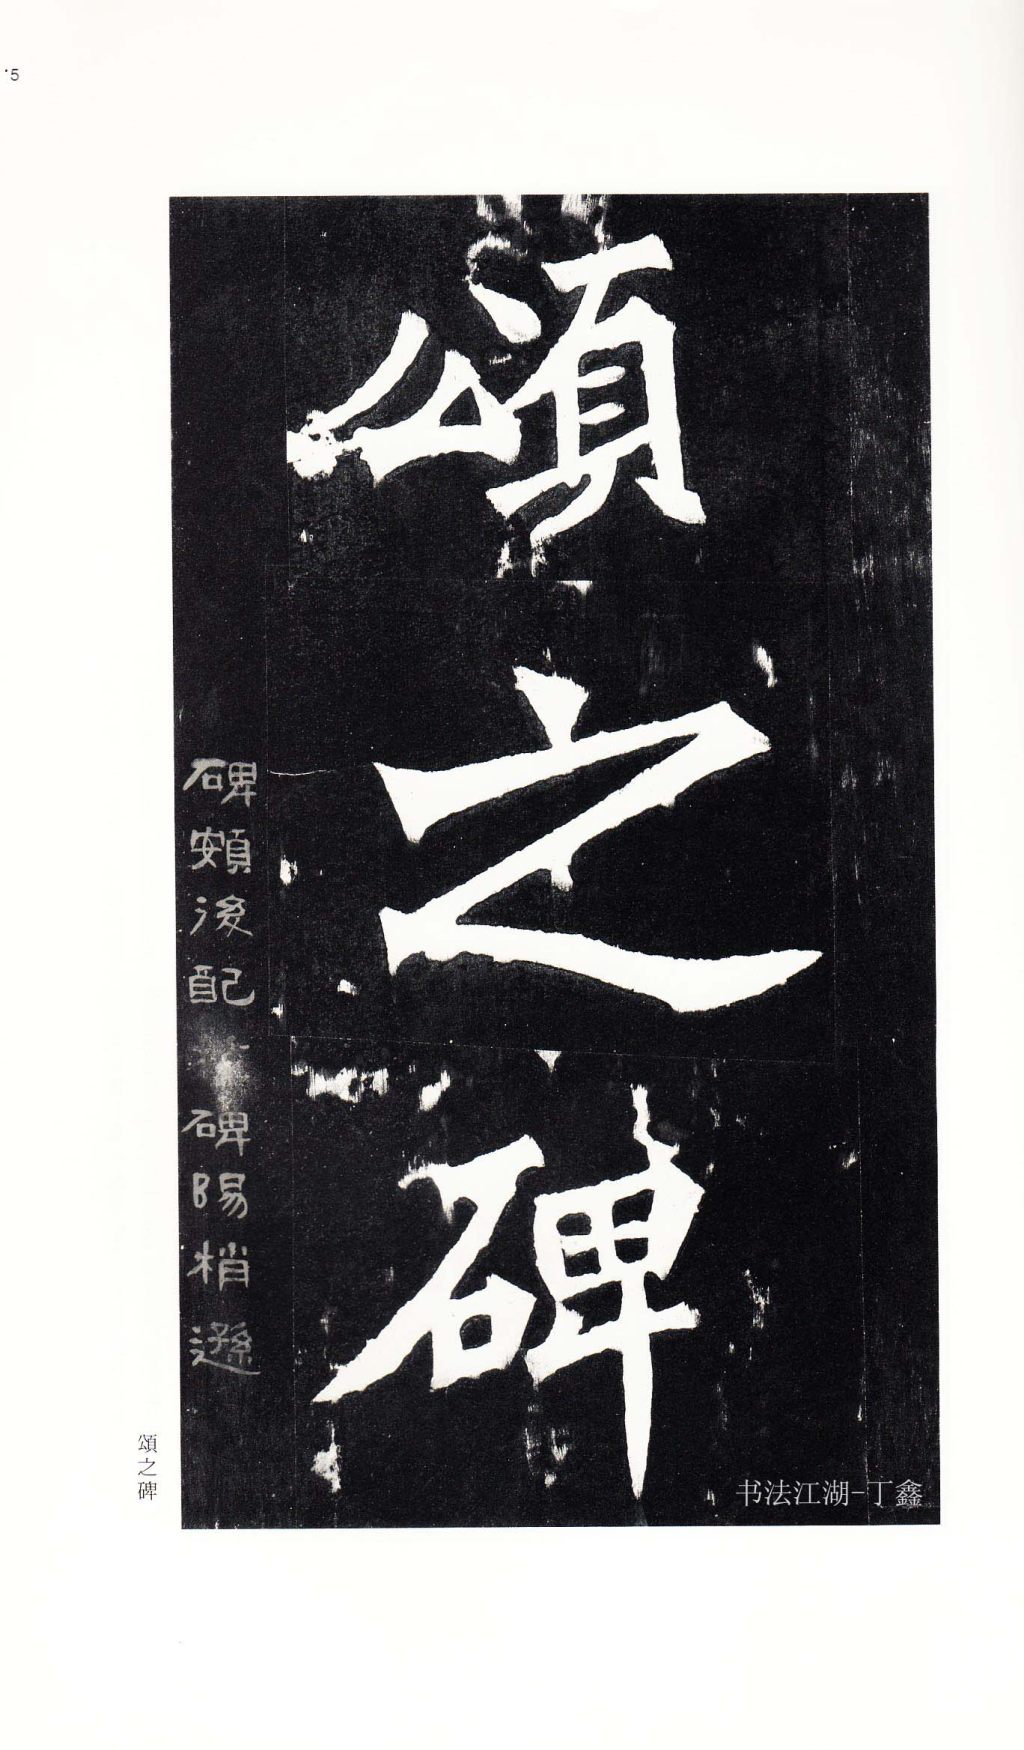 頌之碑
碑頞後配 碑陽梢遜
頌之碑
书法江湖-丁鑫
5